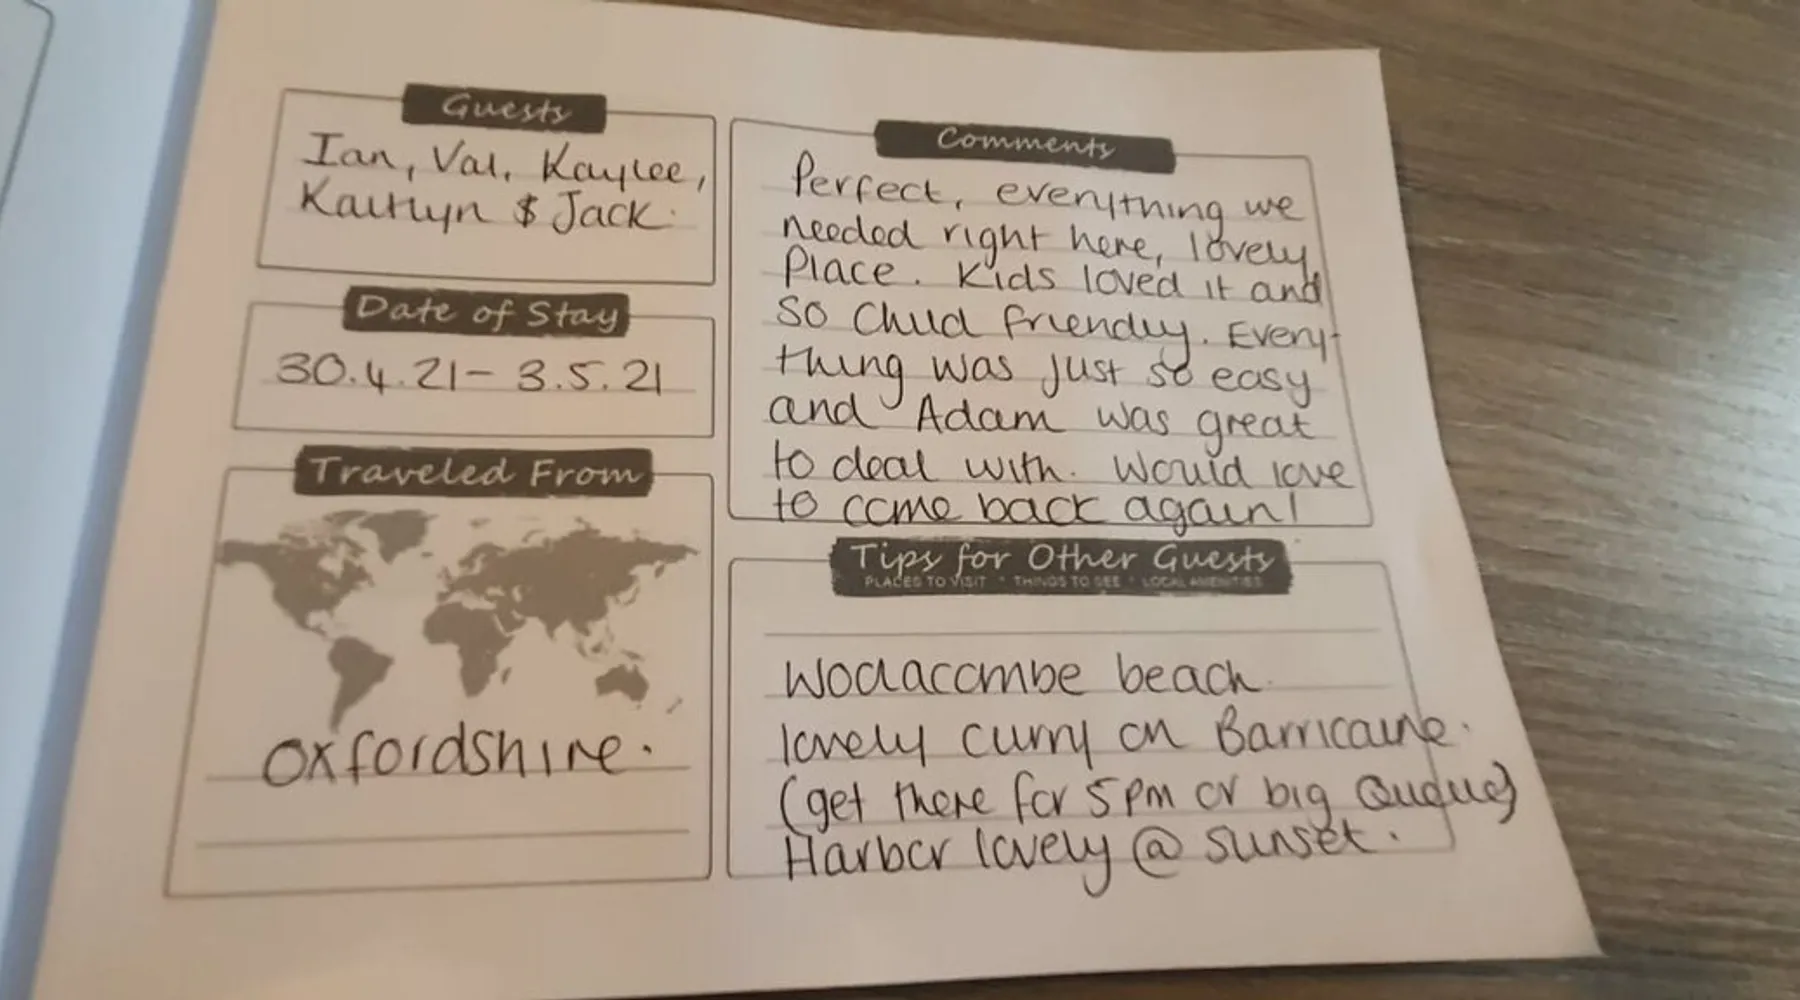 Guests
Ian, Val, Kaylee,
Kaitlyn & Jack.
Date of Stay
30.4.21 - 3.5.21
Traveled From
Oxfordshire.
Comments
Perfect, everything we
needed right here, lovely
Place. Kids loved it and
so Child friendly. Every-
thing was just so easy
and Adam was great
to deal with. Would love
to come back again!
Tips for Other Guests
PLACES TO VISIT * THINGS TO SEE * LOCAL AMENITIES
Woolacombe beach.
lovely curry on Barricane.
(get there for 5pm or big Queue)
Harbor lovely @ sunset.